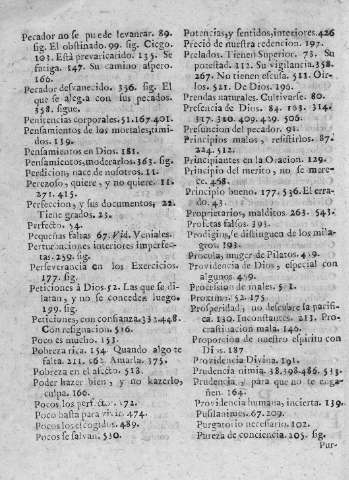 Pecador no se puede levantar. 89.
sig. El obstinado. 99. sig. Ciego.
103. Està prevaricado. 135. Se
fatiga. 147. Su camino aspero.
166.
Pecador desvanecido. 336. sig. El
que se alegra con sus pecados.
358. sigue.
Penitencias corporales. 51. 167. 401.
Pensamientos de los mortales, timi-
dos. 119.
Pensamientos en Dios. 181.
Pensamientos, moderarlos. 363. sig.
Perdicion, nace de nosotros. 11.
Perezoso, quiere, y no quiere. 11.
271. 415.
Perfeccion, y sus documentos, 22.
Tiene grados. 23.
Perfecto. 54.
Pequeñas faltas 67. Vid. Veniales.
Perturbaciones interiores imperfec-
tas. 259. sig.
Perseverancia en los Exercicios.
177. sig.
Peticiones à Dios 52. Las que se di-
latan, y no se conceden luego.
199. sig.
Peticiones, con confianza. 332. 448.
Con resignacion. 516.
Poco es mucho. 153.
Pobreza rica. 154. Quando algo te
falta. 211. Amarla. 375.
Pobreza en el afecto. 518.
Poder hazer bien, y no hazerlo,
culpa. 166.
Pocos los perfectos. 172.
Poco basta para vivir. 474.
Pocos los escogidos. 489.
Pocos se salvan. 530.
Potencias, y sentidos, interiores. 426
Precio de nuestra redencion. 197.
Prelados. Tienen Superior. 73. Su
potestad. 112. Su vigilancia. 358.
267. No tienen escusa. 511. Oir-
los. 521. De Dios. 196.
Prendas naturales. Cultiverse. 80.
Presencia de Dios. 84. 183. 314.
317. 310. 409. 429. 506.
Presuncion del pecador. 91.
Principios malos, resistirlos. 87.
224. 512.
Principiantes en la Oracion. 129.
Principio del merito, no se mere-
ce. 468.
Principio bueno. 177. 536. El erra-
do. 43.
Proprietarios, malditos. 263. 543.
Profetas falsos. 393.
Prodigios, se distinguen de los mila-
gros. 393.
Procula, muger de Pilatos. 459.
Providencia de Dios, especial con
algunos. 459.
Procission de males. 521.
Proximo. 52. 175.
Prosperidad, no descubre la pacifi-
ca. 130. Inconstante. 213. Pro-
crastinacion mala. 146.
Proporcion de nuestro espiritu con
Dios. 187
Providencia Divina. 191.
Prudencia nimia. 38. 398. 486. 533.
Prudencia, y para que no te enga-
ñen. 164.
Providencia humana, incierta. 139.
Pusilanimes. 67. 209.
Purgatorio necesario. 102.
Pureza de conciencia. 205. sig.
Pur-